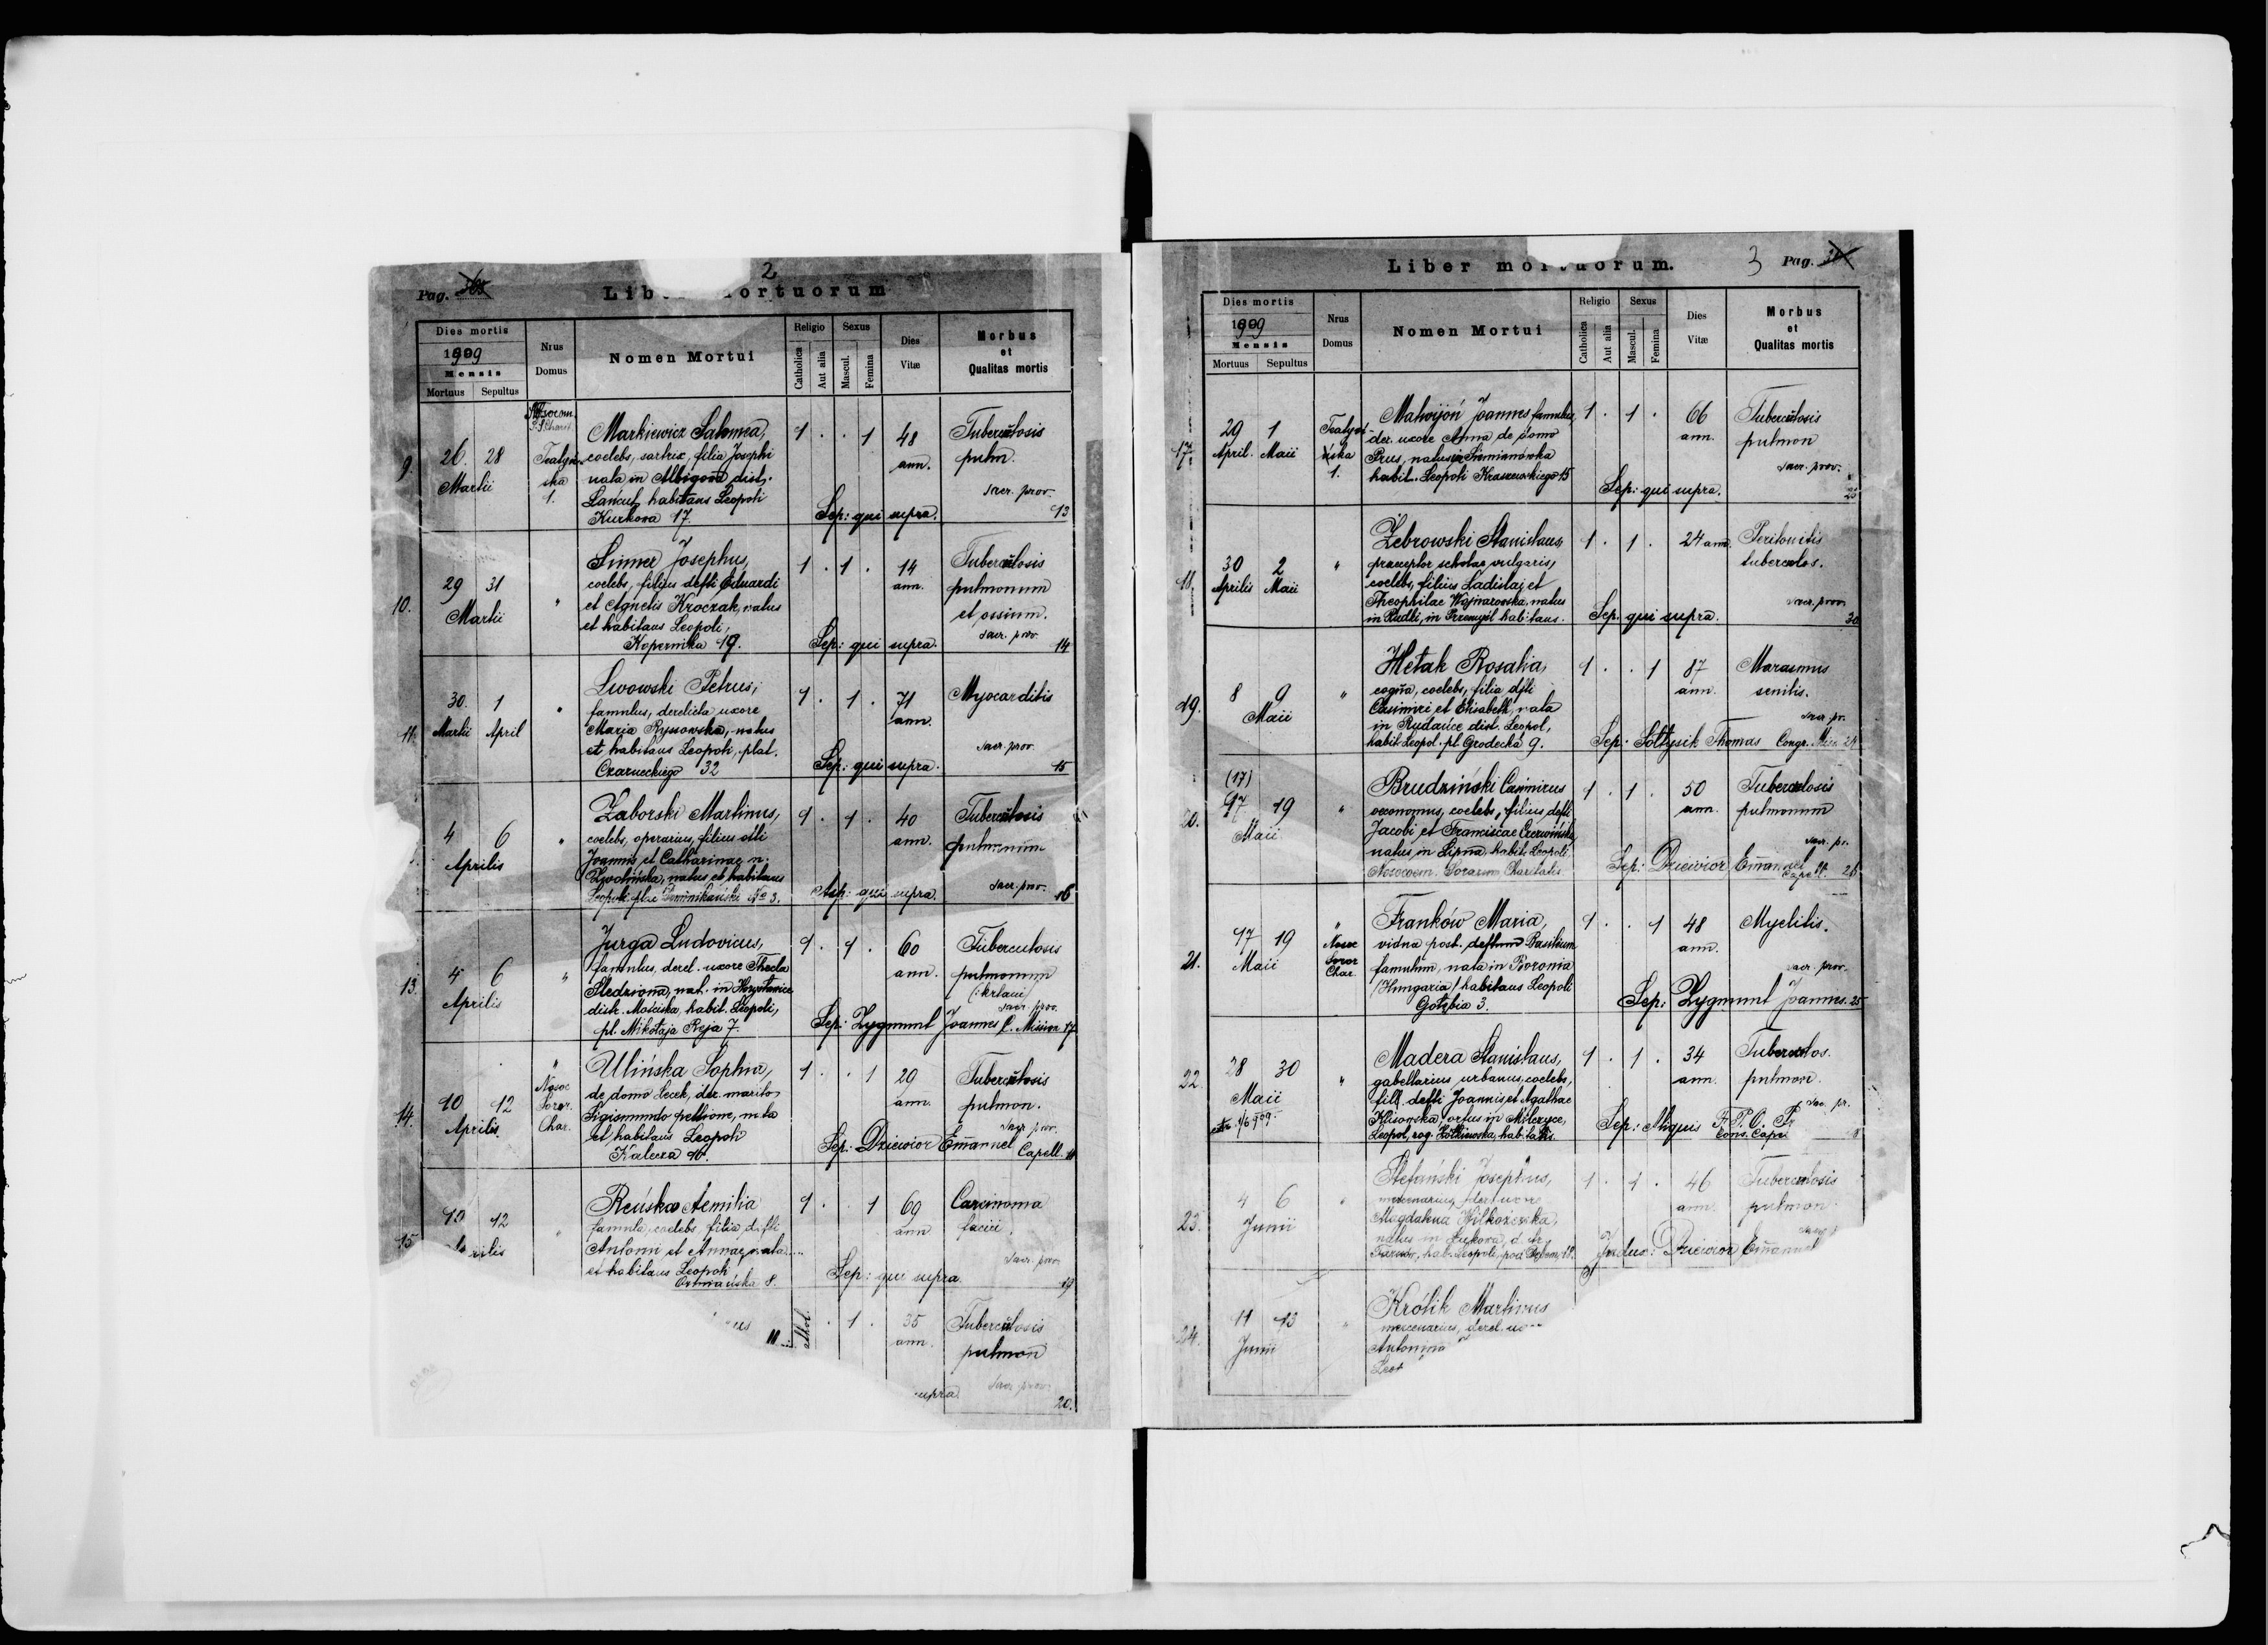 2
Pag. 365
Liber mortuorum
Dies mortis
1909
Mensis
Mortuus Sepultus
Nrus
Domus
Nomen Mortui
Religio
Catholica
Aut alia
Sexus
Mascul.
Femina
Dies
Vitæ
Morbus
et
Qualitas mortis
9.
26. 28
Martii
Nosocom.
S.S. Charit.
Teatyń-
ska
1.
Markiewicz Salomea,
coelebs, sartrix, filia Josephi
nata in Albigowa dist.
Łańcut, habitans Leopoli
Kurkowa 17.
1 . . 1 48
ann.
Tuberculosis
pulm.
Sacr. prov.
Sep: qui supra. 13
10.
29 31
Martii
"
Josephus,
coelebs, filius defti Eduardi
et Agnetis Kroczak, natus
et habitans Leopoli,
Kopernika 19.
1 . 1 . 14
ann.
Tuberculosis
pulmonum
et ossium.
Sacr. prov.
Sep: qui supra. 14
11.
30. 1
Martii April
"
Lwowski Petrus,
famulus, derelicta uxore
Maria Ryssowska, natus
et habitans Leopoli, plat.
Czarneckiego 32
1 . 1 . 71
ann.
Myocarditis
Sacr. prov.
Sep: qui supra. 15
4 6
Aprilis
"
Zaborski Martinus,
coelebs, operarius, filius
Joannis et Catharinae n.
natus et habitans
Leopoli No 3.
1 . 1 . 40
ann.
Tuberculosis
pulmonum
Sacr. prov.
Sep: qui supra. 16
13.
4 6
Aprilis
"
Jurga Ludovicus,
famulus, derel. uxore Thecla
Śledziona, nat. in
distr. Mościska, habit. Leopoli,
pl. Mikołaja Reja 7.
1 . 1 . 60
ann.
Tuberculosis
pulmonum
Sacr. prov.
Sep: Zygmunt Joannes C. Mission 17
14.
10 12
Aprilis.
"
Nosoc
Soror.
Char.
Ulińska Sophia,
de domo Lecek, der. marito
Sigismundo pellione, nata
et habitans Leopoli
Kalecza
1 . . 1 29
ann.
Tuberculosis
pulmon.
Sacr. prov.
Sep: Dziewior Emanuel Capell.
15
10 12
"
Reńska Aemilia
famula, coelebs, filia defti
Antonii et Annae, nata
et habitans Leopoli
Ormiańska 8.
1 . . 1 69
ann
Carcinoma
faciei.
Sacr. prov.
Sep: qui supra. 19
. 1 . 35
ann.
Tuberculosis
pulmon
Sacr. prov.
supra. 20.
Liber mortuorum.
3 Pag.
Dies mortis
1909
Mensis
Mortuus Sepultus
Nrus
Domus
Nomen Mortui
Religio
Catholica
Aut alia
Sexus
Mascul.
Femina
Dies
Vitæ
Morbus
et
Qualitas mortis
17.
29 1
April. Maii
Teatyń-
ska
1.
Joannes famulus,
der. uxore Anna de domo
Prus, natus in Siemianówka
habit. Leopoli Kraszewskiego 15
1 . 1 . 66
ann.
Tuberculosis
pulmon
Sacr. prov.
Sep: qui supra.
18.
30 2
Aprilis Maii
"
Żebrowski Stanislaus,
praeceptor scholae vulgaris,
coelebs, filius Ladislai et
Theophilae Wojnarowska, natus
in Rudki, in Przemyśl habitans.
1 . 1 . 24 ann.
Peritonitis
tuberculos.
Sacr. prov.
Sep. qui supra. 30
19.
8 9
Maii
"
Hetak Rosalia,
coelebs, filia dfti
Casimiri et Elisabeth, nata
in Rudańce dist. Leopol,
habit. Leopol. pl. Grodecka 9.
1 . . 1 87
ann.
Marasmus
senilis.
Sacr. pr.
Sep: Sołtysik Thomas Congr. Miss
20.
(17)
17 19
Maii
"
Brudziński Casimirus
oeconomus, coelebs, filius defti
Jacobi et Franciscae Czerwińska,
natus in Lipna, habit. Leopoli
Nosocom. Sororum Charitatis
1 . 1 . 50
ann.
Tuberculosis
pulmonum
Sacr. pr.
Sep: Dziewior Emanuel Capell. 26
21.
17 19
Maii
"
Nosoc
Soror
Char.
Franków Maria,
vidua post. defunto Basilium
famulum, nata in Boronia
(Hungaria) habitans Leopoli
Gołębia 3.
1 . . 1 48
ann.
Myelitis.
Sacr. prov.
Sep: Zygmunt Joannes. 25
22.
28 30
Maii
"
Madera Stanislaus,
gabellarius urbanus, coelebs,
fil. defti Joannis et Agathae
Klisowska, ortus in Milczyce,
Leopol, rog. Żółkiewska, habitans.
1 . 1 . 34
ann.
Tuberculos.
pulmon.
Sac. pr.
Sep:
23.
4 6
Junii
"
Stefański Josephus,
mercenarius, derel. uxore
Magdalena
natus in Żukowa, distr.
hab. Leopoli, pod Dębem, 18.
1 . 1 . 46
ann.
Tuberculosis
pulmon.
Dziewior Emanuel
24.
11 13
Junii
"
Królik Martinus
mercenarius, derel.
Antonina